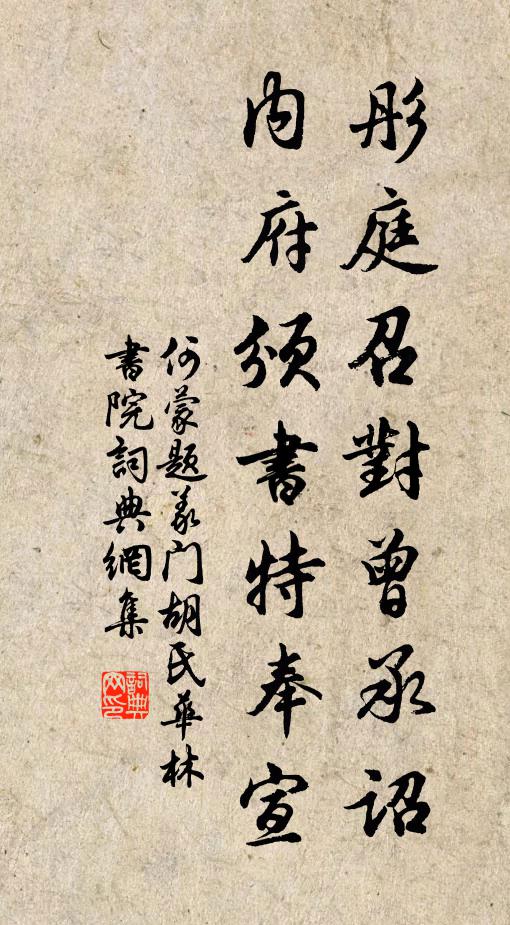 彤庭召對曾承詔
內府頒書特奉宣
何蒙題義门胡氏華林
書院詞典網集
詞典网印